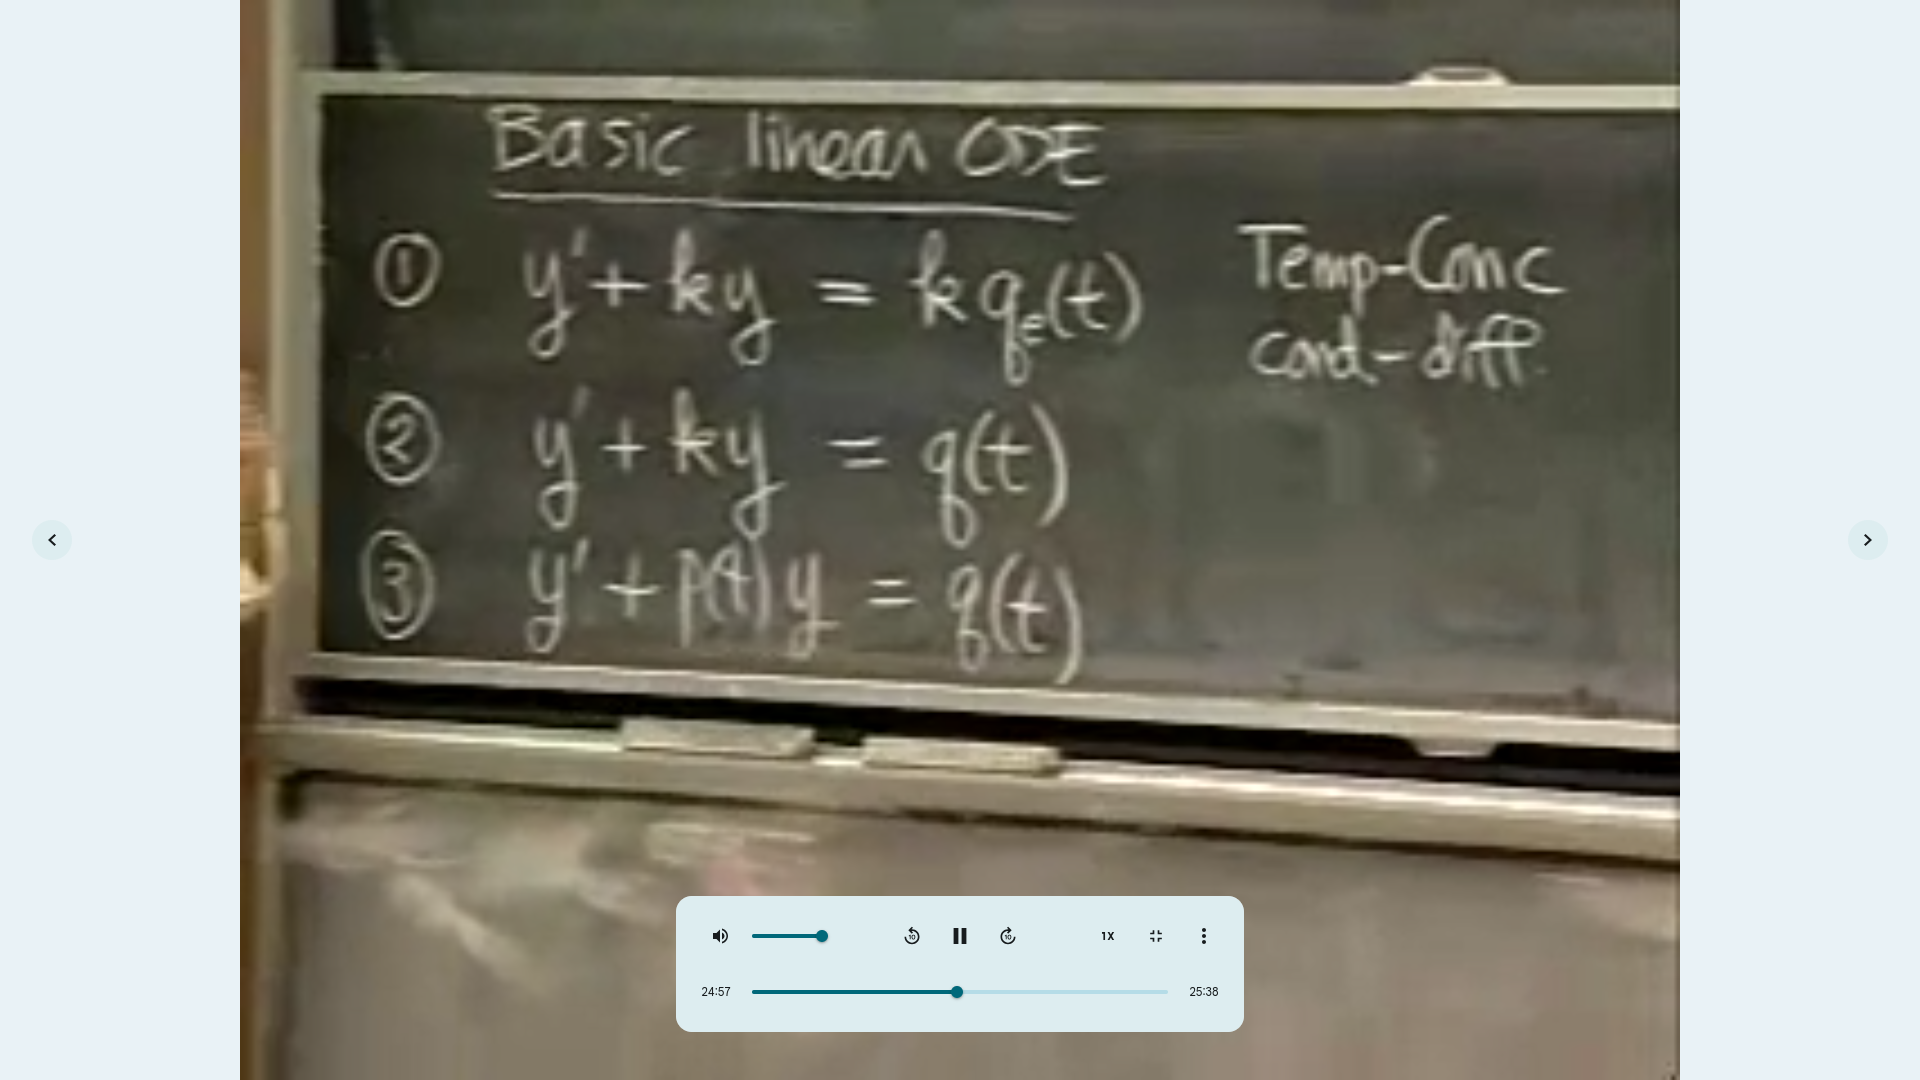 Basic linear ODE
① y' + ky = k qe(t)
Temp-Conc
cond-diff.
② y' + ky = q(t)
③ y' + p(t) y = q(t)
10
10
1X
24:57
25:38